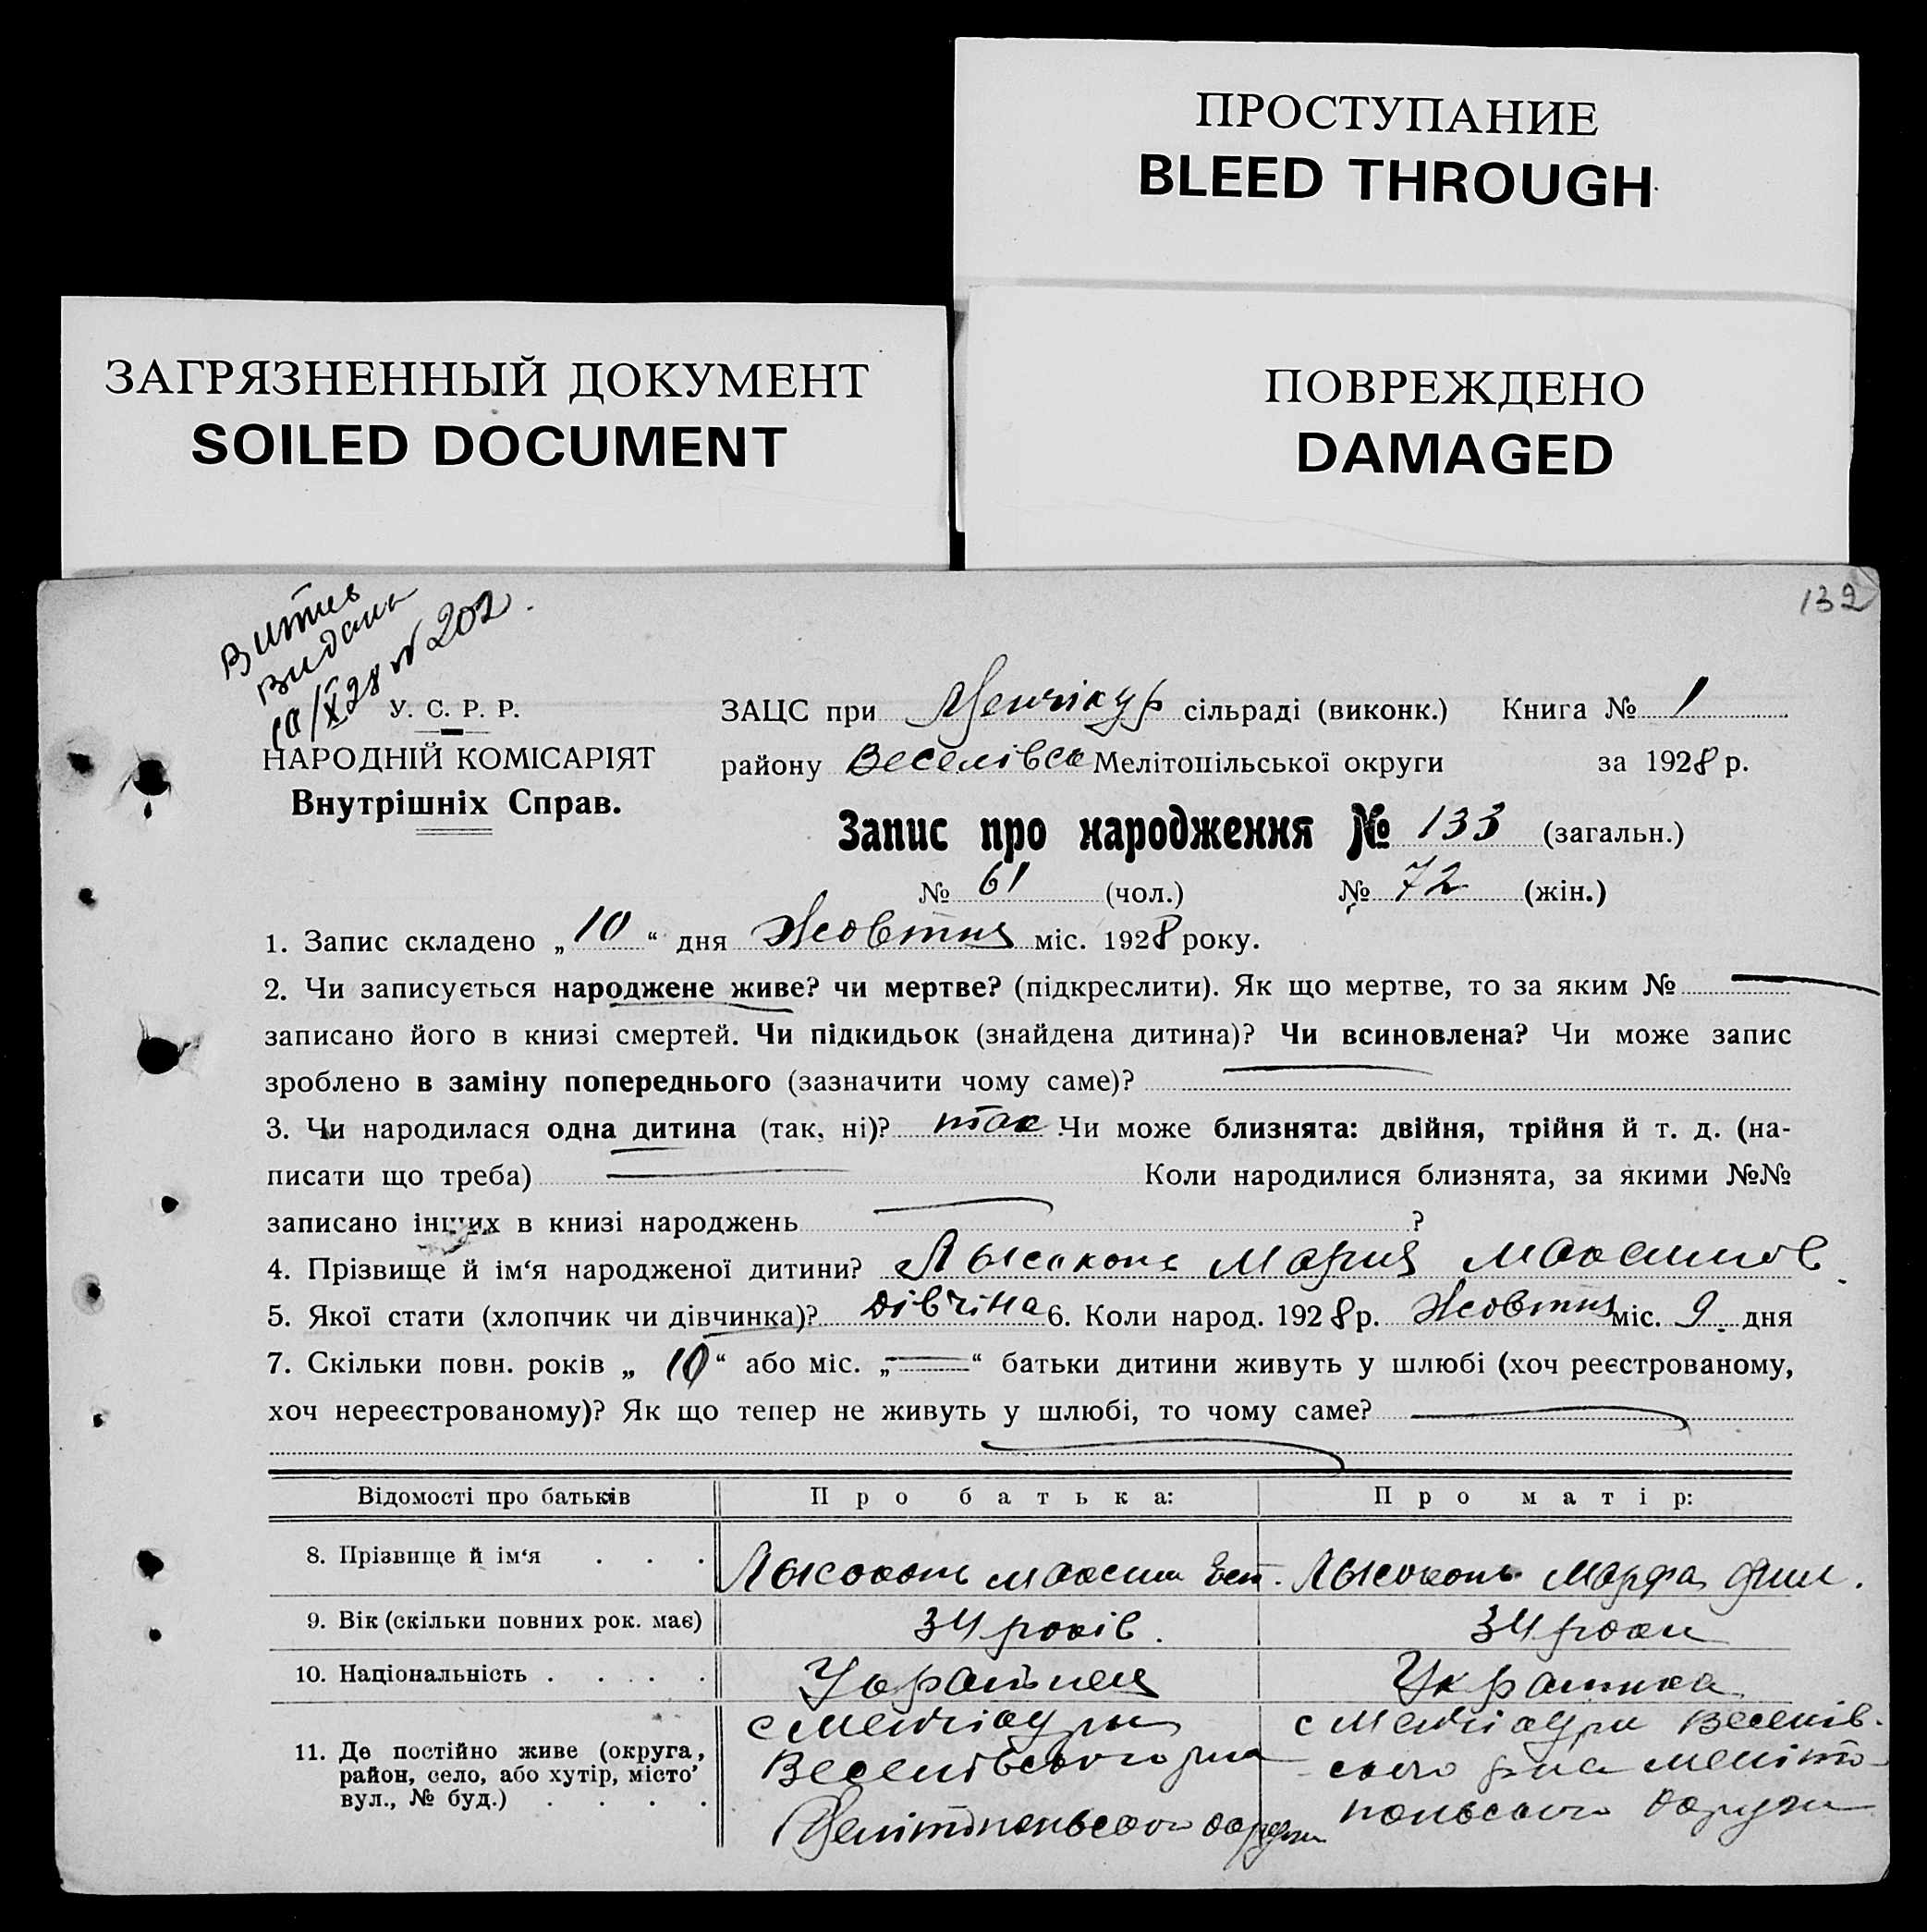 ПРОСТУПАНИЕ
BLEED THROUGH
ЗАГРЯЗНЕННЫЙ ДОКУМЕНТ
SOILED DOCUMENT
ПОВРЕЖДЕНО
DAMAGED
132
Витяг
видано
10/X 28 № 202.
У. С. Р. Р.
НАРОДНІЙ КОМІСАРІЯТ
Внутрішніх Справ.
ЗАЦС при Менчікур сільраді (виконк.) Книга № 1
району Веселівск Мелітопільської округи за 1928 р.
Запис про народження № 133 (загальн.)
№ 61 (чол.) № 72 (жін.)
1. Запис складено „ 10 “ дня Жовтня міс. 1928 року.
2. Чи записується народжене живе? чи мертве? (підкреслити). Як що мертве, то за яким №
записано його в книзі смертей. Чи підкидьок (знайдена дитина)? Чи всиновлена? Чи може запис
зроблено в заміну попереднього (зазначити чому саме)?
3. Чи народилася одна дитина (так, ні)? так Чи може близнята: двійня, трійня й т. д. (на-
писати що треба) Коли народилися близнята, за якими №№
записано інших в книзі народжень ?
4. Прізвище й ім‘я народженої дитини? Лысоконь Мария Максимов
5. Якої стати (хлопчик чи дівчинка)? Дівчіна 6. Коли народ. 1928 р. Жовтня міс. 9 дня
7. Скільки повн. років „ 10 “ або міс. „ — “ батьки дитини живуть у шлюбі (хоч реєстрованому,
хоч нереєстрованому)? Як що тепер не живуть у шлюбі, то чому саме?
Відомості про батьків Про батька: Про матір:
8. Прізвище й ім‘я . . . Лысоконь Максим Евт. Лысоконь Марфа Фил.
9. Вік (скільки повних рок. має) 34 років. 34 роки
10. Національність . . . . Українец Украинка
11. Де постійно живе (округа, район, село, або хутір, місто, вул., № буд.) . . . .
с Менчікури
Веселівского р-на
Мелітопольского округи
с Менчікури Веселів-
ского р-на Меліто-
польского округи